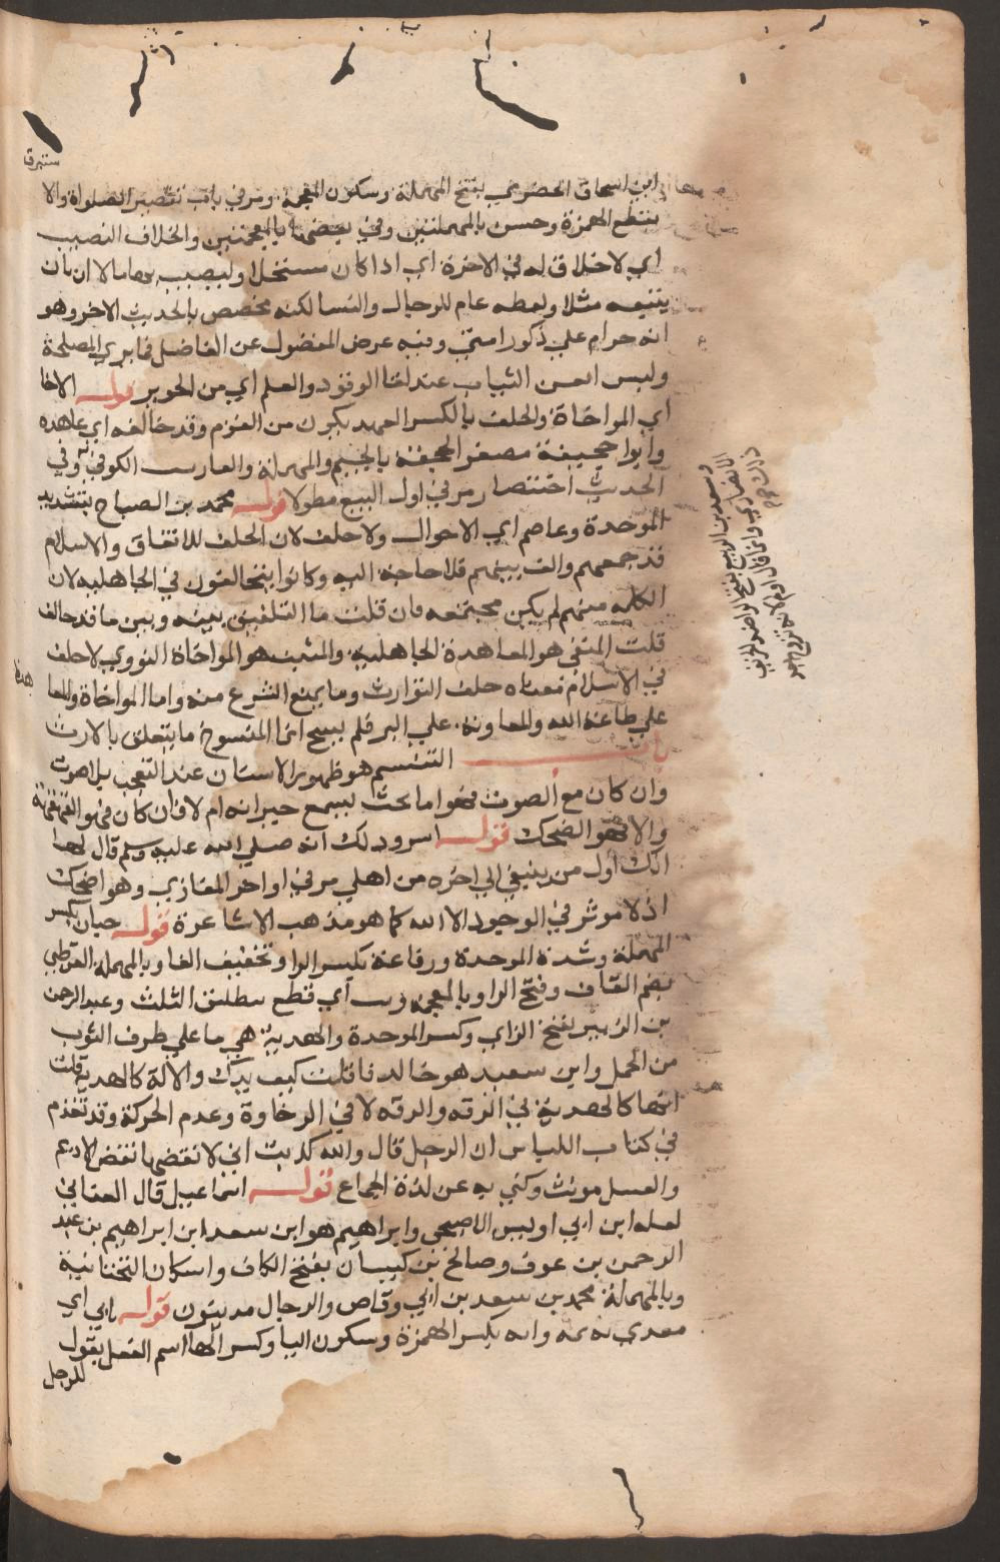 ستبرقا
ابن اسحاق الحضرمي بفتح المهملة وسكون المعجمة ومر في باب تقصير الصلواة والا
بقطع الهمزة وحسن بالمهملتين وفي بعضها بالمعجمتين والخلاف النصيب
اي لاخلاق له في الاخرة اي اذا كان مستحلا وليصيب بها مالا ان بان
يتبعه مثلا ولفظه عام للرجال والنسا لكنه مخصص بالحديث الاخر وهو
انه حرام علي ذكور امتي وفيه عرض المفضول عن الفاضل فما يري المصلحة
ولبس احسن الثياب عند لقا الوفود والعلم اي من الحرير قوله الاخا
اي المواخاة والحلف بالكسر العهد يكون من القوم وقد حالفه اي عاهده
وابوا جحيفة مصغر الجحفة بالجيم والمهملة والفا رب الكوفي وفي
الحديث اختصار مر في اول البيع مطولا قوله محمد بن الصباح بتشديد
الموحدة وعاصم اي الاحوال ولا حلف لان الحلف للاتفاق والاسلام
قد جمعهم والف بينهم فلا حاجة اليه وكانوا يتحالفون في الجاهلية لان
الكلمه منهم لم يكن مجتمعه فان قلت ما التلفيق بينه وبين ما قد حالف
قلت المنفي هو المعاهدة الجاهلية والمثبت هو المواخاة النووي لاحلف
في الاسلام معناه حلف التوارث وما يمنع الشرع منه واما المواخاة والمعا
هدة
علي طاعة الله والمعاونة علي البر فلم ينسخ انما المنسوخ ما يتعلق بالارث
باب التبسم هو ظهور الاسنان عند التعجب بلا صوت
وان كان مع الصوت فهو اما بحث يسمع جيرانه ام لا فان كان فهو القهقهة
والا فهو الضحك قوله اسر وذلك انه صلي الله عليه وسلم قال لها
انك اول من يتبعني الي اخره من اهلي مر في اواخر المغازي وهو اضحك
اذ لا موثر في الوجود الا الله كما هو مذهب الاشاعرة قوله حبان بكسر
المهملة وشدة الموحدة ورفاعة بكسر الرا وتخفيف الفا وبالمهملة القرظي
بضم القاف وفتح الرا وبالمعجمة وبت اي قطع بطلاق الثلث وعبد الرحمن
بن الزبير بفتح الزاي وكسر الموحدة والهدبة هي ما علي طرف الثوب
من الخمل وابن سعيد هو خالد فا قلت كيف يدرك والالة كالهدبة قلت
انها كالهدبة في الرقه والدقه لا في الرخاوة وعدم الحركة وقد تقدم
في كتاب اللباس ان الرجل قال والله كذبت اني لانفضها نفض الاديم
والعسل مونث وكني به عن لذة الجماع قوله اسماعيل قال الغساني
لعله ابن ابي اويس الاصبحي وابراهيم هو ابن سعد ابن ابراهيم بن عبد
الرحمن بن عوف وصالح بن كيسان بفتح الكاف واسكان التحتانية
وبالمهملة محمد بن سعد بن ابي وقاص والرجال مدنيون قوله بابي اي
مفدي به وايه بكسر الهمزة وسكون اليا وكسر الها اسم الفعل يقول
للرجل
وسعد بن الربيع بفتح الرا ضد الخريف
الانصاري وانما قال اولم لانه تزوج
ذلك اليوم